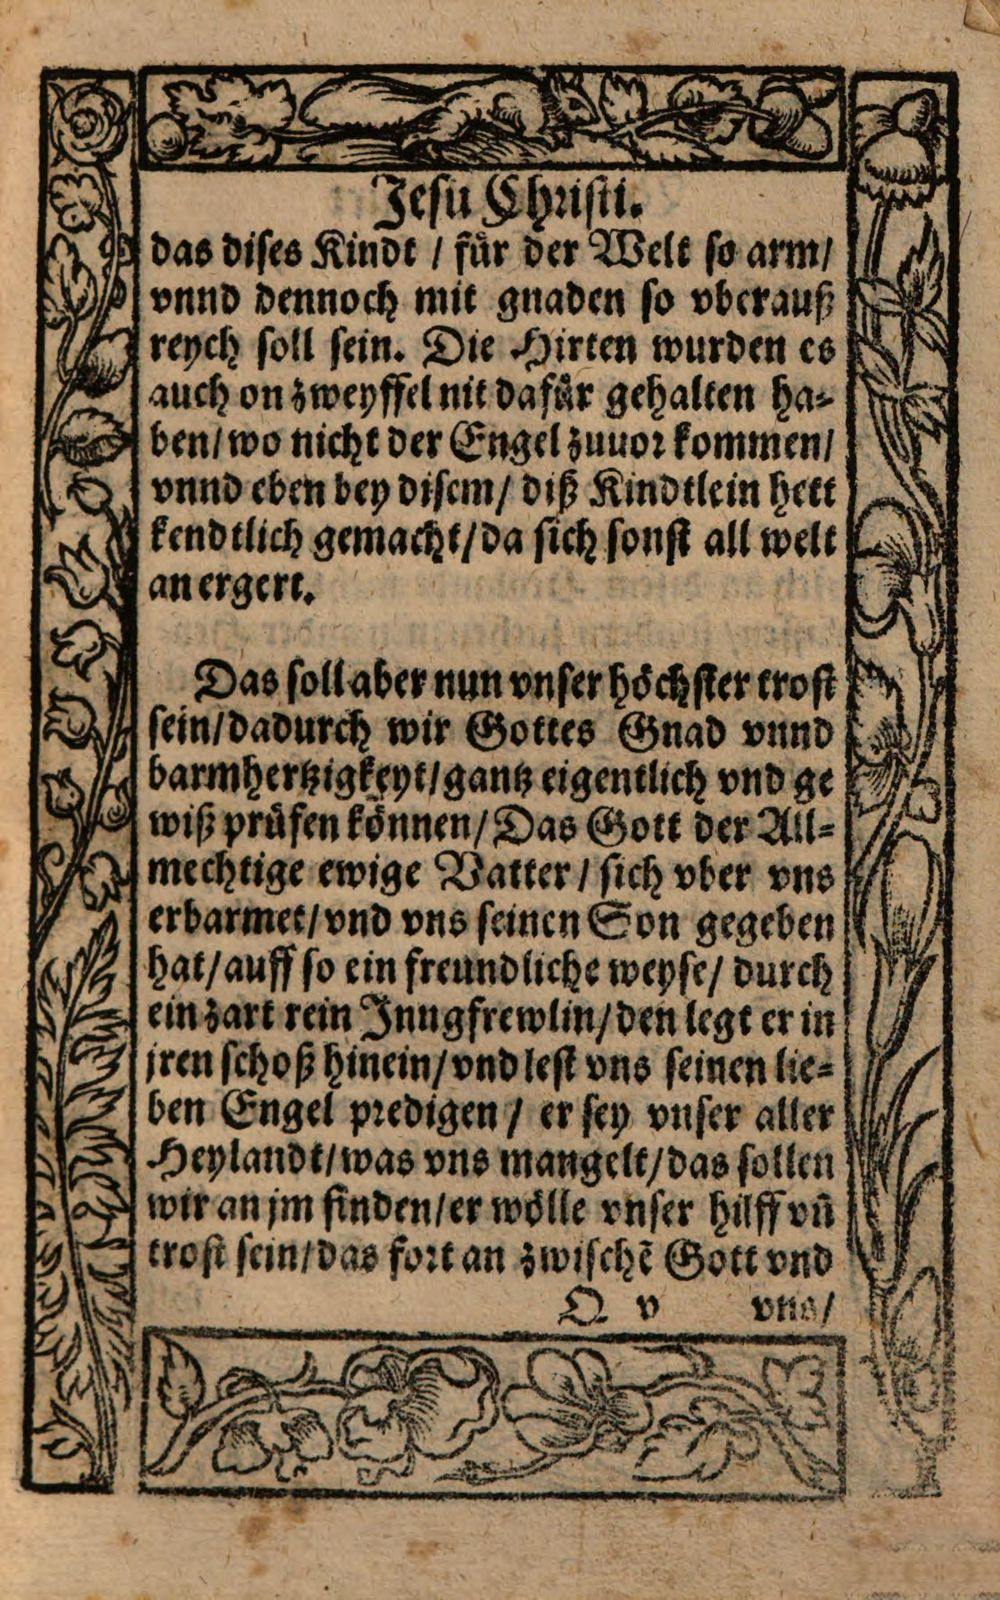 Jesu Christi.
das dises Kindt / für der Welt so arm/
vnnd dennoch mit gnaden so vberauß
reych soll sein. Die Hirten wurden es
auch on zweyffel nit dafür gehalten ha-
ben/ wo nicht der Engel zuuor kommen/
vnnd eben bey disem/ diß Kindtlein hett
kendtlich gemacht/ da sich sonst all welt
an ergert.
Das soll aber nun vnser höchster trost
sein/ dadurch wir Gottes Gnad vnnd
barmhertzigkeyt/ gantz eigentlich vnd ge
wiß prüfen können/ Das Gott der All-
mechtige ewige Vatter / sich vber vns
erbarmet/ vnd vns seinen Son gegeben
hat/ auff so ein freundliche weyse/ durch
ein zart rein Jnngfrewlin/ den legt er in
jren schoß hinein/ vnd lest vns seinen lie-
ben Engel predigen / er sey vnser aller
Heylandt/ was vns mangelt/ das sollen
wir an jm finden/ er wölle vnser hilff vñ
trost sein/ das fort an zwischẽ Gott vnd
Q v vns/